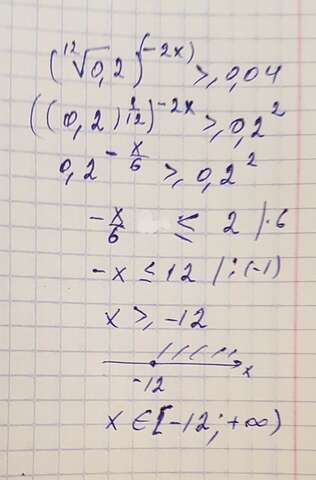 (¹²√0,2)^(-2x) ⩾ 0,04
((0,2)^(1/12))^-2x ⩾ 0,2²
0,2^(-x/6) ⩾ 0,2²
-x/6 ≤ 2 |·6
-x ≤ 12 |:(-1)
x ⩾ -12
-12 x
x ∈ [-12; +∞)